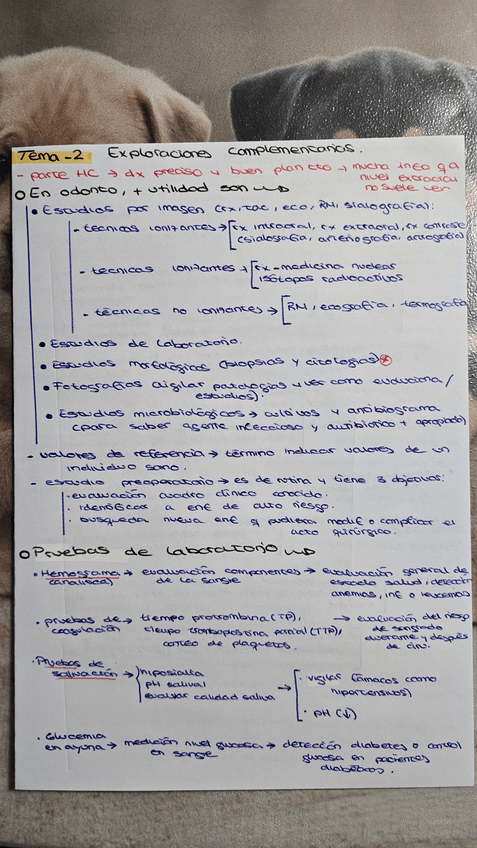 Tema-2 Exploraciones complementarias.
- parte HC → dx preciso y buen plan tto → mucha info q a
nivel extraoral
no suele ver
O En odonto, + utilidad son
• Estudios por imagen (rx, tac, eco, RN, sialografía):
- técnicas ionizantes → rx intraoral, rx extraoral, rx contraste
(sialografía, arteriografía, artrografía)
- técnicas ionizantes → rx-medicina nuclear
isótopos radioactivos
- técnicas no ionizantes → RN, ecografía, termografía
• Estudios de laboratorio.
• Estudios morfológicos (biopsias y citologías)
• Fotografías (vigilar patologías y ver como evoluciona/
estudios).
• Estudios microbiológicos → cultivos y antibiograma
(para saber agente infeccioso y antibiótico + apropiado)
- valores de referencia → término indicar valores de un
individuo sano.
- estudio preoperatorio → es de rutina y tiene 3 objetivos:
· evaluación cuadro clínico conocido.
· identificar a enf de alto riesgo.
· busqueda nueva enf q pudiera modif o complicar el
acto quirúrgico.
O Pruebas de laboratorio
· Hemograma → evaluación componentes → evaluación general de
(analítica) de la sangre estado salud, detección
anemias, inf o leucemias
· pruebas de → tiempo protrombina (TP), → evaluación del riesgo
coagulación tiempo tromboplastina parcial (TTPa), de sangrado
conteo de plaquetas. durante y después
de ciru.
· Pruebas de
salivación → hiposialia
pH salival
evaluar calidad saliva → · vigilar fármacos como
hipertensivos)
· pH (↓)
· Glucemia
en ayuna → medición nivel glucosa → detección diabetes o control
en sangre glucosa en pacientes
diabéticos.